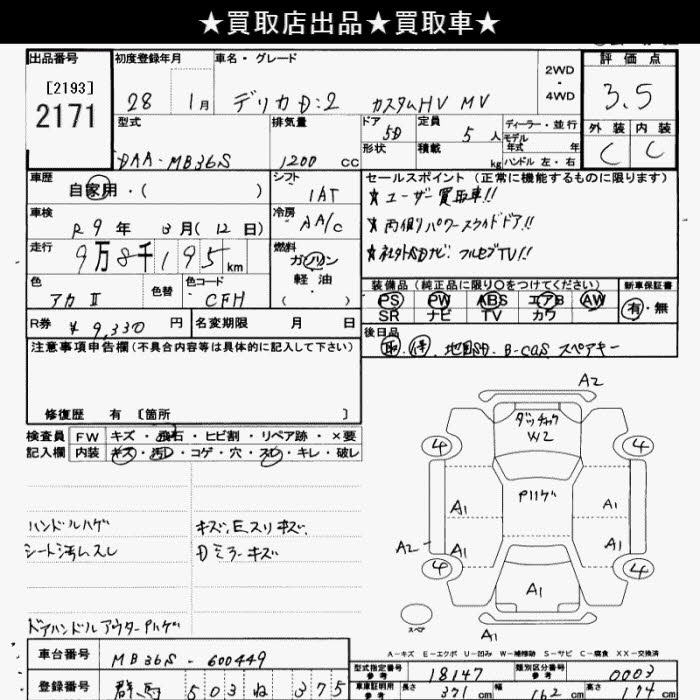 ★買取店出品★買取車★
出品番号
[2193]
2171
初度登録年月
28 1月
車名・グレード
デリカD:2 カスタムHV MV
2WD
・
4WD
評価点
3.5
外装 内装
C C
型式
DAA-MB36S
排気量
1200 cc
ドア
5D
定員
5人
ディーラー・並行
モデル
年式 年
形状
積載
kg
ハンドル 左・右
車歴
自家用・( )
シフト
1AT
車検
R9年 3月(12日)
冷房
AA/C
走行
9万8千195km
燃料
ガソリン
軽油
( )
色
アカII
色替
色コード
CFH
R券 ¥9,330 円
名変期限 月 日
セールスポイント(正常に機能するものに限ります)
★ユーザー買取車!!
★両側パワースライドドア!!
★社外SDナビ フルセグTV!!
装備品(純正品に限り○をつけてください)
PS PW ABS エアB AW
SR ナビ TV カワ
新車保証書
有・無
後日品
取.保.地図SD.B-CAS スペアキー
注意事項申告欄(不具合内容等は具体的に記入して下さい)
修復歴 有〔箇所 〕
検査員
記入欄
FW キズ・飛石・ヒビ割・リペア跡・×要
内装 キズ・汚れ・コゲ・穴・スレ・キレ・破レ
ハンドルハゲ
シート汚レスレ
ドアハンドルアウターPハゲ
キズ.Eスリキズ.
Dミラーキズ
A2
ダッチャク
W2
4 4
Pハゲ
A1 A1
A2 A1 A1
4 4
A1
スペア
A1
A-キズ E-エクボ U-凹み W-補修跡 S-サビ C-腐食 XX-交換済
車台番号 MB36S-600449
登録番号 群馬 503 ね 375
型式指定番号
参考
18147
類別区分番号
参考
0003
車庫証明用
参考
長さ 371 cm 幅 162 cm 高さ 174 cm